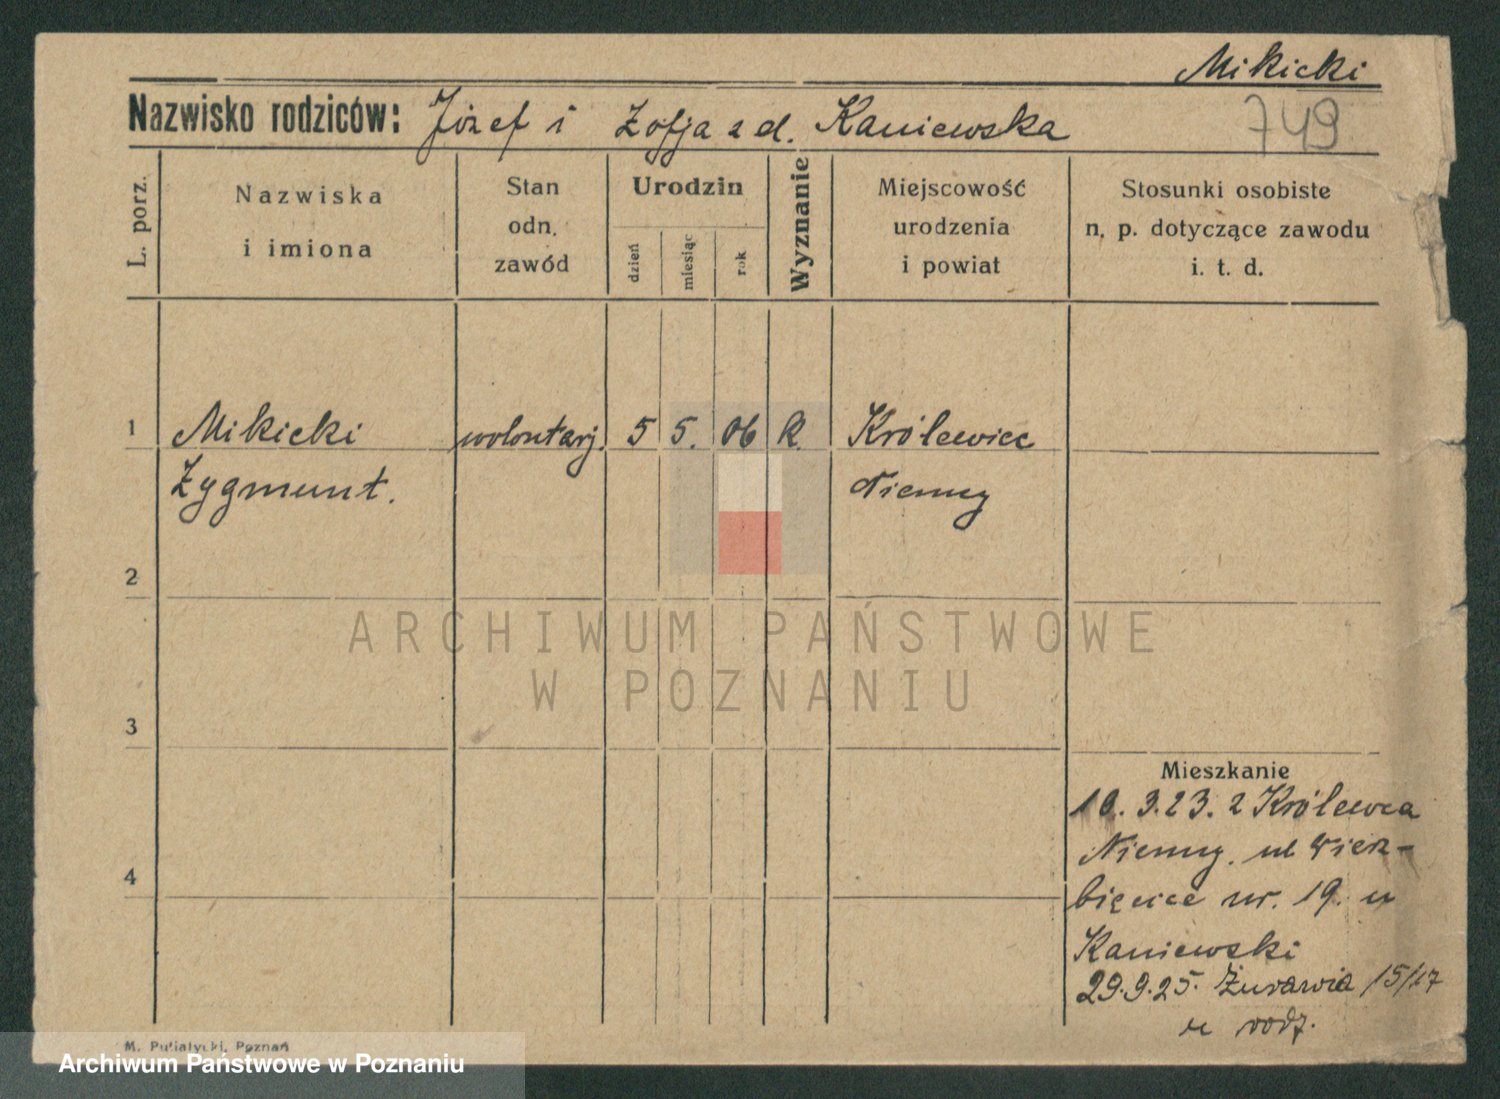 Mikicki
Nazwisko rodziców: Józef i Zofja z d. Kaniewska
749
L. porz.
Nazwiska
i imiona
Stan
odn.
zawód
Urodzin
dzień
miesiąc
rok
Wyznanie
Miejscowość
urodzenia
i powiat
Stosunki osobiste
n. p. dotyczące zawodu
i. t. d.
1 Mikicki wolontarj. 5 5. 06 k. Królewiec
Zygmunt. Niemcy
2
3
4
Mieszkanie
10. 3.23. z Królewca
Niemcy. ul Wierz-
bięcice nr. 19. u
Kaniewski
29.9.25. Żurawia 15/17
u rodz.
ARCHIWUM PAŃSTWOWE
W POZNANIU
M. Putiatycki, Poznań
Archiwum Państwowe w Poznaniu